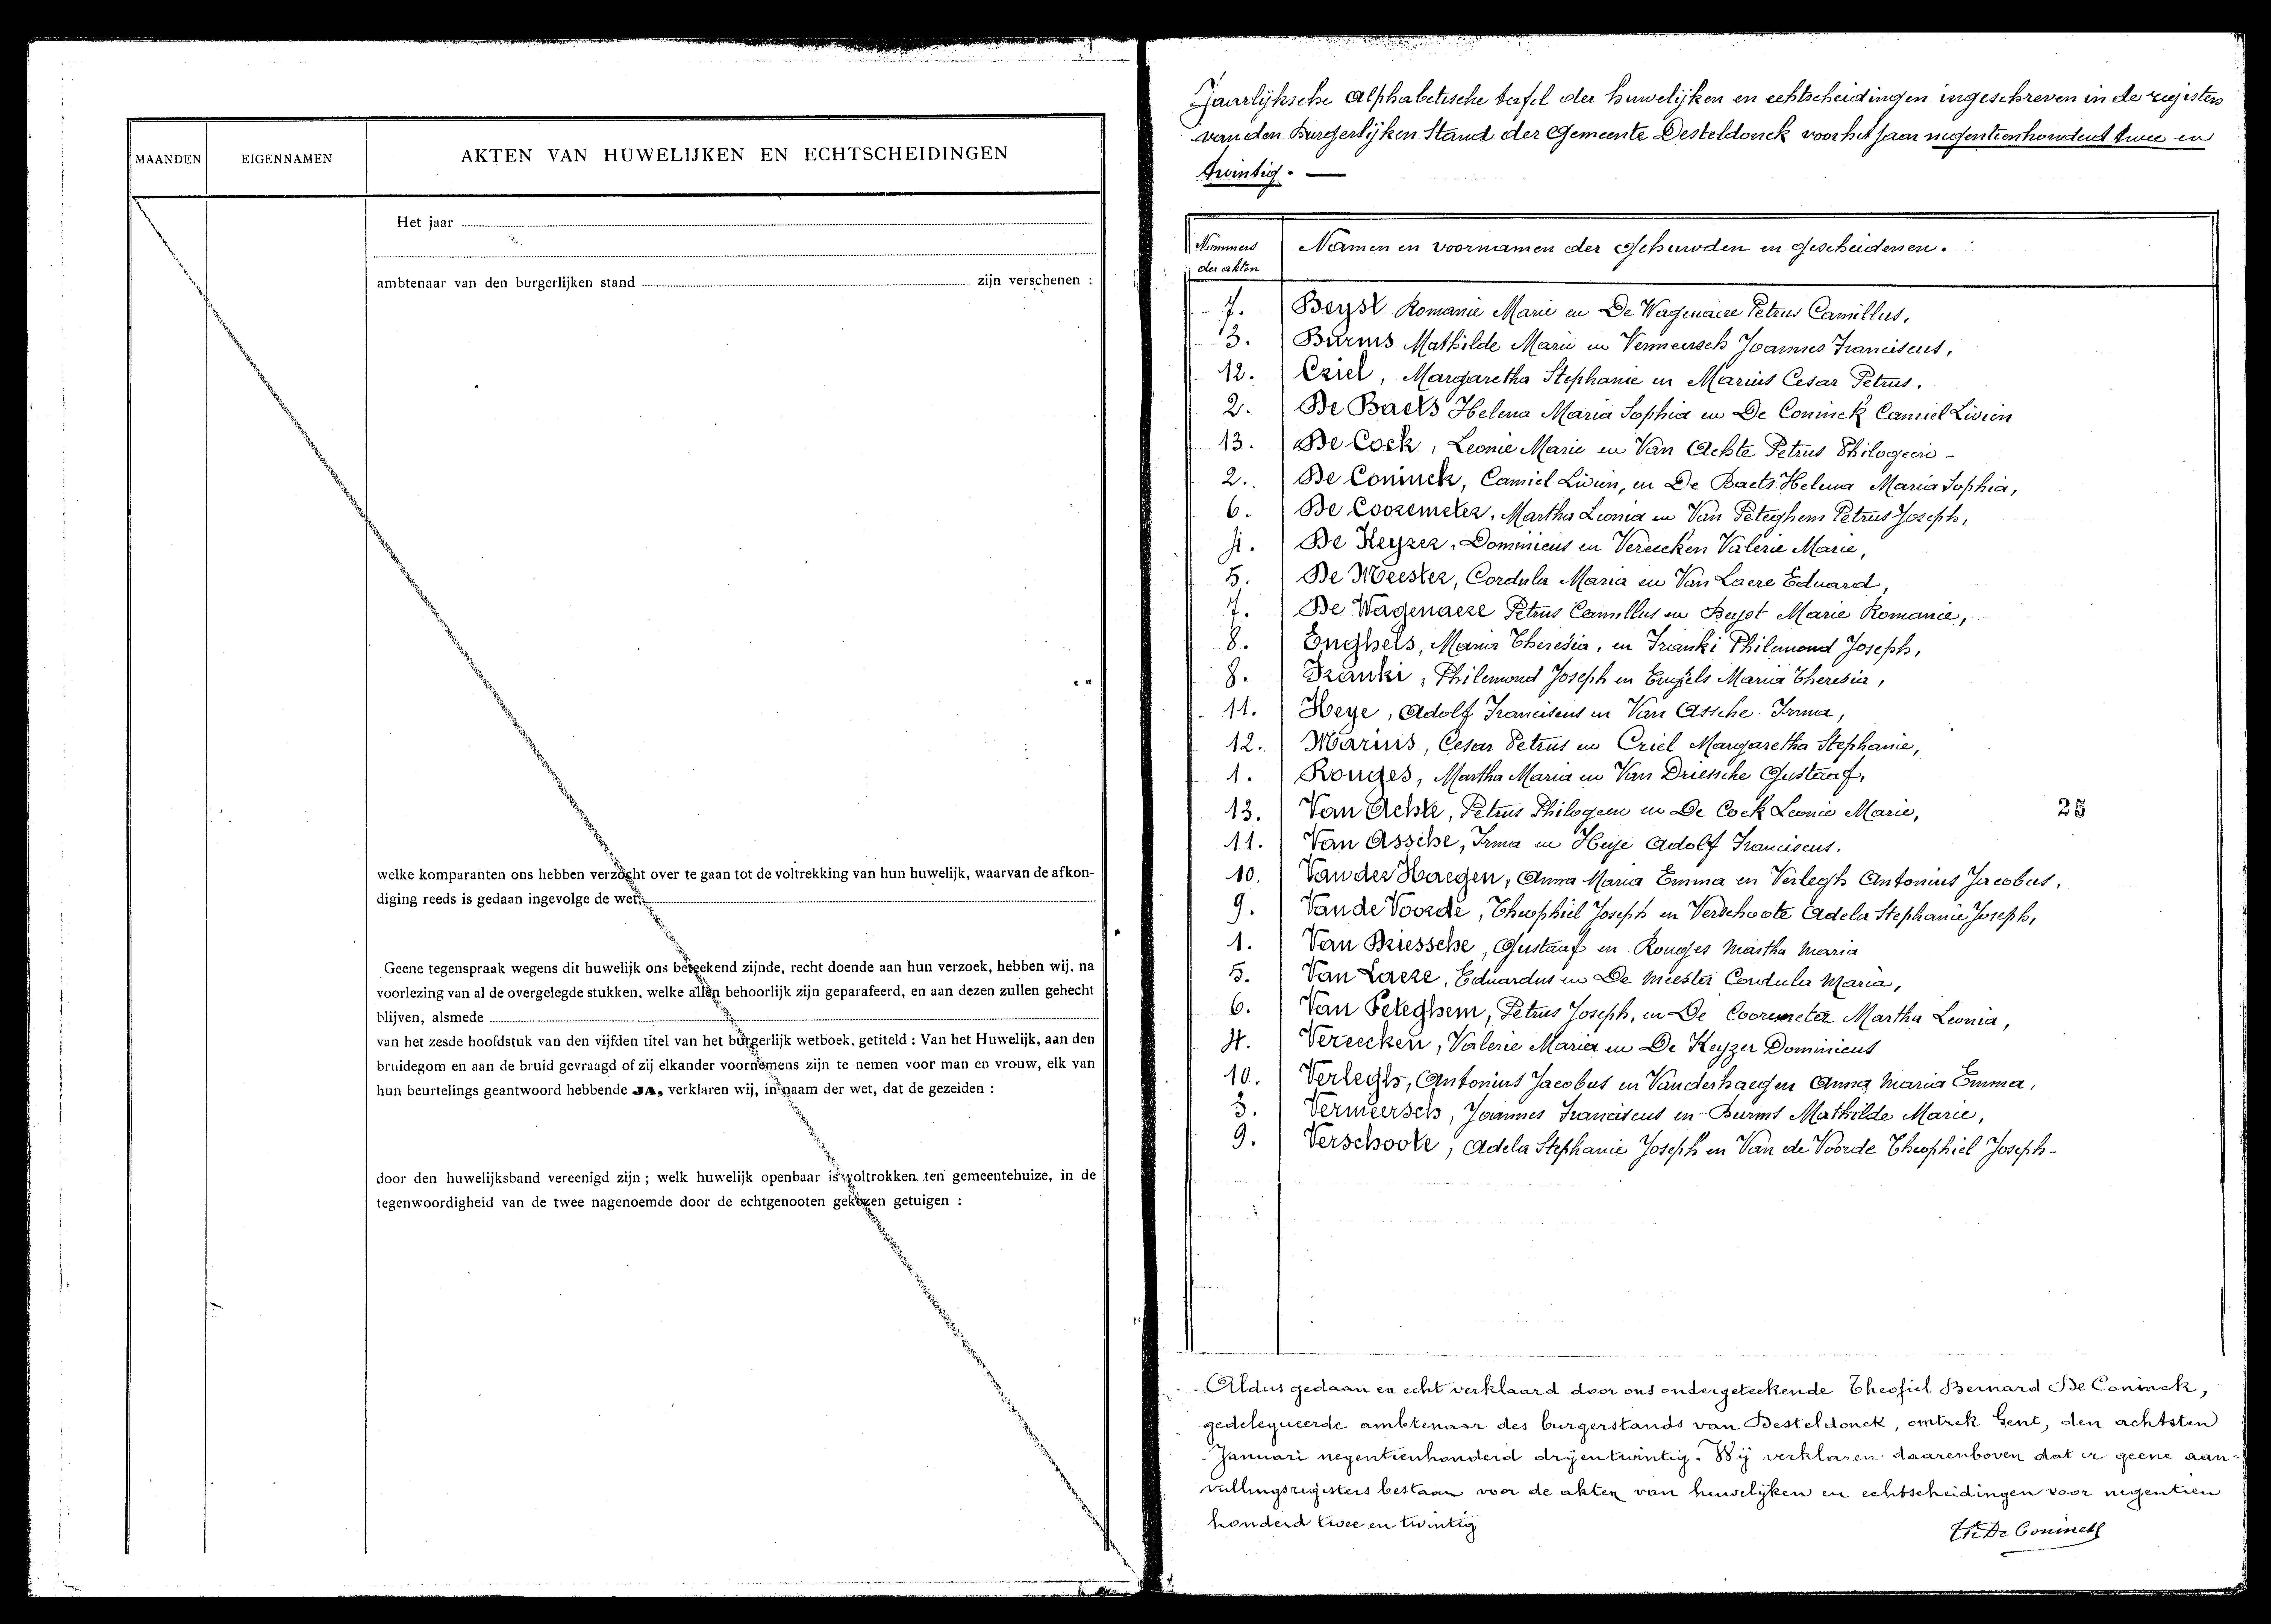 MAANDEN
EIGENNAMEN
AKTEN VAN HUWELIJKEN EN ECHTSCHEIDINGEN
Het jaar
ambtenaar van den burgerlijken stand zijn verschenen :
welke komparanten ons hebben verzocht over te gaan tot de voltrekking van hun huwelijk, waarvan de afkon-
diging reeds is gedaan ingevolge de wet.
Geene tegenspraak wegens dit huwelijk ons beteekend zijnde, recht doende aan hun verzoek, hebben wij, na
voorlezing van al de overgelegde stukken, welke allen behoorlijk zijn geparafeerd, en aan dezen zullen gehecht
blijven, alsmede
van het zesde hoofdstuk van den vijfden titel van het burgerlijk wetboek, getiteld : Van het Huwelijk, aan den
bruidegom en aan de bruid gevraagd of zij elkander voornemens zijn te nemen voor man en vrouw, elk van
hun beurtelings geantwoord hebbende JA, verklaren wij, in naam der wet, dat de gezeiden :
door den huwelijksband vereenigd zijn ; welk huwelijk openbaar is voltrokken ten gemeentehuize, in de
tegenwoordigheid van de twee nagenoemde door de echtgenooten gekozen getuigen :
Jaarlijksche alphabetische tafel der huwelijken en echtscheidingen ingeschreven in de registers
van den Burgerlijken Stand der Gemeente Desteldonck voor het jaar negentienhonderd twee en
twintig. —
Nummers der akten
Namen en voornamen der gehuwden en gescheidenen.
7. Beyst Romanie Marie en De Wagenaere Petrus Camillus,
3. Burms Mathilde Marie en Vermeersch Joannes Franciscus,
12. Criel, Margaretha Stephanie en Marius Cesar Petrus,
2. De Baets Helena Maria Sophia en De Coninck Camiel Livien
13. De Cock, Leonie Marie en Van Achte Petrus Philogeen -
2. De Coninck, Camiel Livien, en De Baets Helena Maria Sophia,
6. De Cooremeter, Martha Leonia en Van Peteghem Petrus Joseph,
4. De Keyzer, Dominicus en Vereecken Valerie Marie,
5. De Meester, Cordula Maria en Van Laere Eduard,
7. De Wagenaere Petrus Camillus en Beyst Marie Romanie,
8. Enghels, Maria Theresia, en Franki Philemond Joseph,
8. Franki, Philemond Joseph en Engels Maria Theresia,
11. Heye, Adolf Franciscus en Van Assche Irma,
12. Marius, Cesar Petrus en Criel Margaretha Stephanie,
1. Rouges, Martha Maria en Van Driessche Gustaaf,
13. Van Achte, Petrus Philogeen en De Cock Leonie Marie,
25
11. Van Assche, Irma en Heye Adolf Franciscus.
10. Van der Haegen, Anna Maria Emma en Verlegh Antonius Jacobus.
9. Van de Voorde, Theophiel Joseph en Verschoote Adela Stephanie Joseph,
1. Van Driessche, Gustaaf en Rouges Martha Maria
5. Van Laere, Eduardus en De Meester Cordula Maria,
6. Van Peteghem, Petrus Joseph, en De Cooremeter Martha Leonia,
4. Vereecken, Valerie Maria en De Keyzer Dominicus
10. Verlegh, Antonius Jacobus en Vanderhaegen Anna Maria Emma,
3. Vermeersch, Joannes Franciscus en Burms Mathilde Marie,
9. Verschoote, Adela Stephanie Joseph en Van de Voorde Theophiel Joseph -
Aldus gedaan en echt verklaard door ons ondergeteekende Theofiel Bernard De Coninck,
gedelegueerde ambtenaar des burgerstands van Desteldonck, omtrek Gent, den achtsten
Januari negentienhonderd drijentwintig. Wij verklaren daarenboven dat er geene aan-
vullingsregisters bestaan voor de akten van huwelijken en echtscheidingen voor negentien
honderd twee en twintig
Th De Coninck